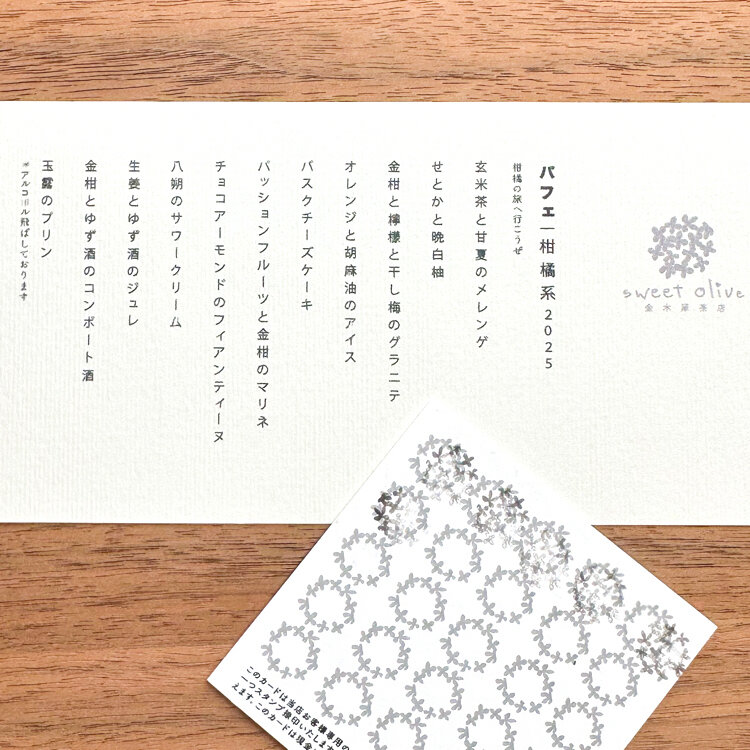 sweet olive
金木犀茶店
パフェ｜柑橘系2025
柑橘の旅へ行こうぜ
玄米茶と甘夏のメレンゲ
せとかと晩白柚
金柑と檸檬と干し梅のグラニテ
オレンジと胡麻油のアイス
バスクチーズケーキ
パッションフルーツと金柑のマリネ
チョコアーモンドのフィアンティーヌ
八朔のサワークリーム
生姜とゆず酒のジュレ
金柑とゆず酒のコンポート酒
玉露のプリン
*アルコール飛ばしております
このカードは当店お客様専用の
一つスタンプ捺印いたします
えます。このカードは現金